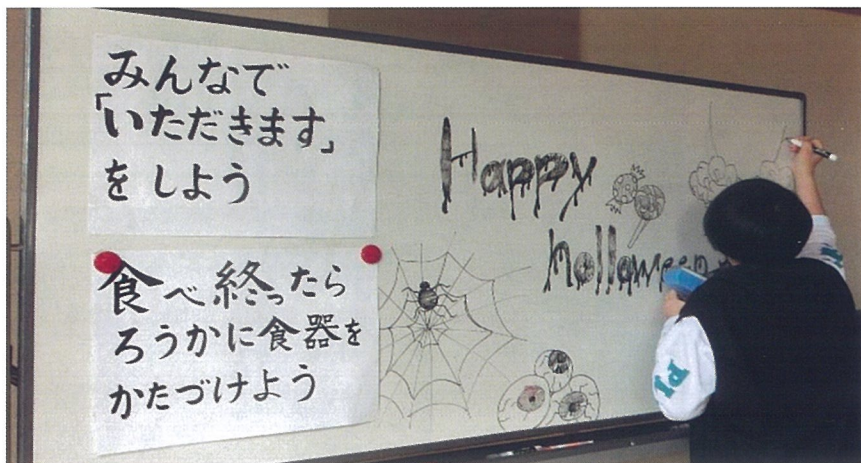 みんなで
「いただきます」
をしよう
食べ終ったら
ろうかに食器を
かたづけよう
Happy
holloween